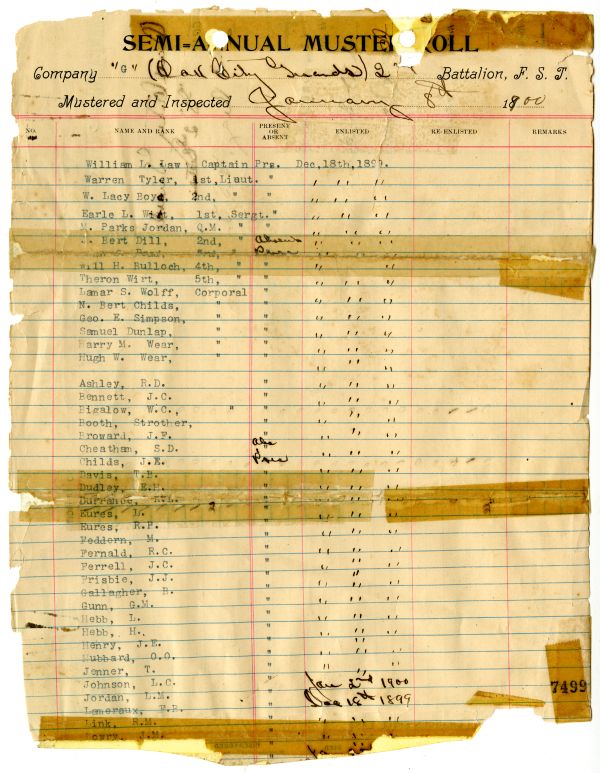 SEMI=ANNUAL MUSTER ROLL
Company "G" (Oak City Guards) 2" Battalion, F. S. T.
Mustered and Inspected January 8th 1900
NO. NAME AND RANK PRESENT OR ABSENT ENLISTED RE-ENLISTED REMARKS
William L. Law, Captain Prs. Dec,18th,1899.
Warren Tyler, 1st,Lieut. " " " "
W. Lacy Boyd, 2nd, " " " " "
Earle L. Wirt, 1st, Sergt. " " " "
M. Parks Jordan, Q.M. " " " " "
J. Bert Dill, 2nd, " Absent " " "
3rd, " " " "
Will H. Bulloch, 4th, " " " " "
Theron Wirt, 5th, " " " " "
Lamar S. Wolff, Corporal " " " "
N. Bert Childs, " " " " "
Geo. E. Simpson, " " " " "
Samuel Dunlap, " " " " "
Harry M. Wear, " " " " "
Hugh W. Wear, " " " " "
Ashley, R.D. " " " "
Bennett, J.C. " " " "
Bigalow, W.C., " " " " "
Booth, Strother, " " " "
Broward, J.F. " " " "
Cheatham, S.D. Abs " " "
Childs, J.E. Pres " " "
Davis, T.B. " " " "
Dudley, E.H. " " " "
Durrance, " " " "
Eures, L. " " " "
Eures, R.P. " " " "
Feddern, M. " " " "
Fernald, R.C. " " " "
Ferrell, J.C. " " " "
Frisbie, J.J. " " " "
Gallagher, B. " " " "
Gunn, G.M. " " " "
Hebb, L. " " " "
Hebb, H. " " " "
Henry, J.E. " " " "
Hubbard, O.O. " " " "
Jenner, T. " " " "
Johnson, L.C. " Jan 2nd 1900
Jordan, L.M. " Dec 18th 1899
Lameraux, F.B. " " " "
Link, R.M. " " " "
Lowry, J.M.
7499